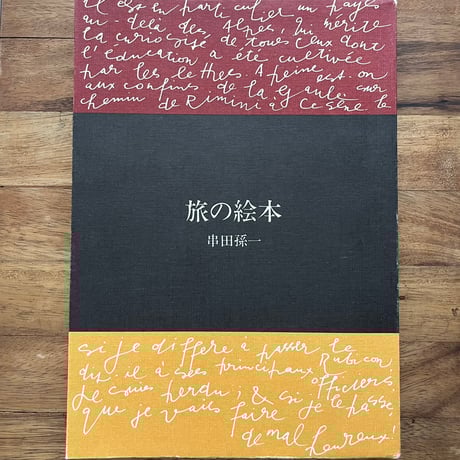 Il est en particulier un pays
au-delà des Alpes, qui mérite
la curiosité de tous ceux dont
l'éducation a été cultivée
par les lettres. A peine est-on
aux confins de la Gaule, sur
chemin de Rimini à Cesène le
旅の絵本
串田孫一
si je differe à passer le
dit-il à ses principaux Rubicon,
officiers
Je suis perdu; & si je le passe,
que je vais faire
de malheureux!